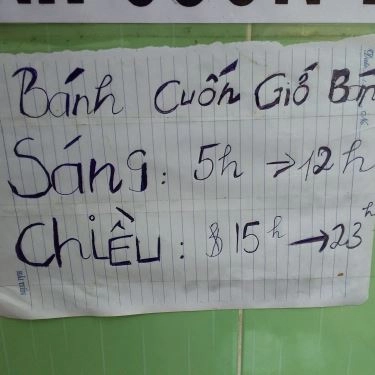 Bánh Cuốn Giố Bán
Sáng: 5h → 12h
CHIỀU: 15h → 23h